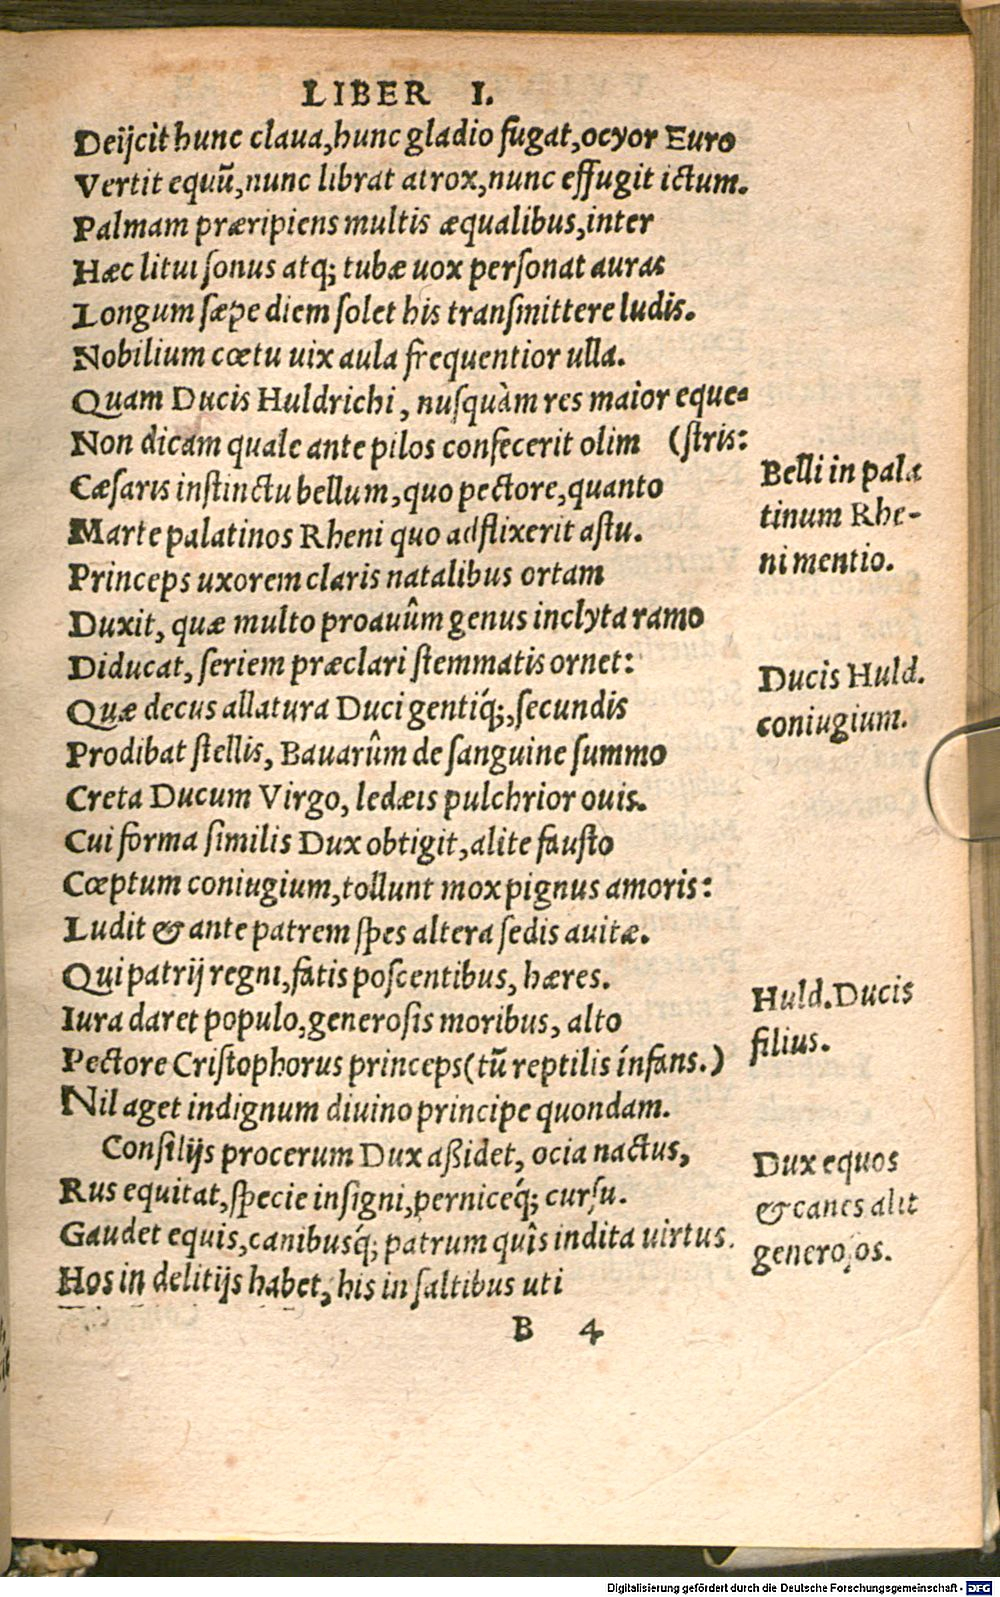 LIBER I.
Deijcit hunc claua, hunc gladio fugat, ocyor Euro
Vertit equũ, nunc librat atrox, nunc effugit ictum.
Palmam præripiens multis æqualibus, inter
Hæc litui ſonus atq; tubæ uox perſonat auras
Longum ſæpe diem ſolet his tranſmittere ludis.
Nobilium cœtu uix aula frequentior ulla.
Quam Ducis Huldrichi, nuſquàm res maior eque-
Non dicam quale ante pilos confecerit olim (ſtris:
Cæſaris inſtinctu bellum, quo pectore, quanto
Marte palatinos Rheni quo adflixerit aſtu.
Princeps uxorem claris natalibus ortam
Duxit, quæ multo proauûm genus inclyta ramo
Diducat, ſeriem præclari ſtemmatis ornet:
Quæ decus allatura Duci gentiq́;, ſecundis
Prodibat ſtellis, Bauarûm de ſanguine ſummo
Creta Ducum Virgo, ledæis pulchrior ouis.
Cui forma ſimilis Dux obtigit, alite fauſto
Cœptum coniugium, tollunt mox pignus amoris:
Ludit & ante patrem ſpes altera ſedis auitæ.
Qui patrij regni, fatis poſcentibus, hæres.
Iura daret populo, generoſis moribus, alto
Pectore Criſtophorus princeps (tũ reptilis ínfans.)
Nil aget indignum diuino principe quondam.
Conſilijs procerum Dux aßidet, ocia nactus,
Rus equitat, ſpecie inſigni, perniceq́; curſu.
Gaudet equis, canibusq́; patrum quîs indita uirtus.
Hos in delitijs habet, his in ſaltibus uti
B 4
Belli in pala
tinum Rhe-
ni mentio.
Ducis Huld.
coniugium.
Huld. Ducis
filius.
Dux equos
& canes alit
generoſos.
Digitalisierung gefördert durch die Deutsche Forschungsgemeinschaft - DFG